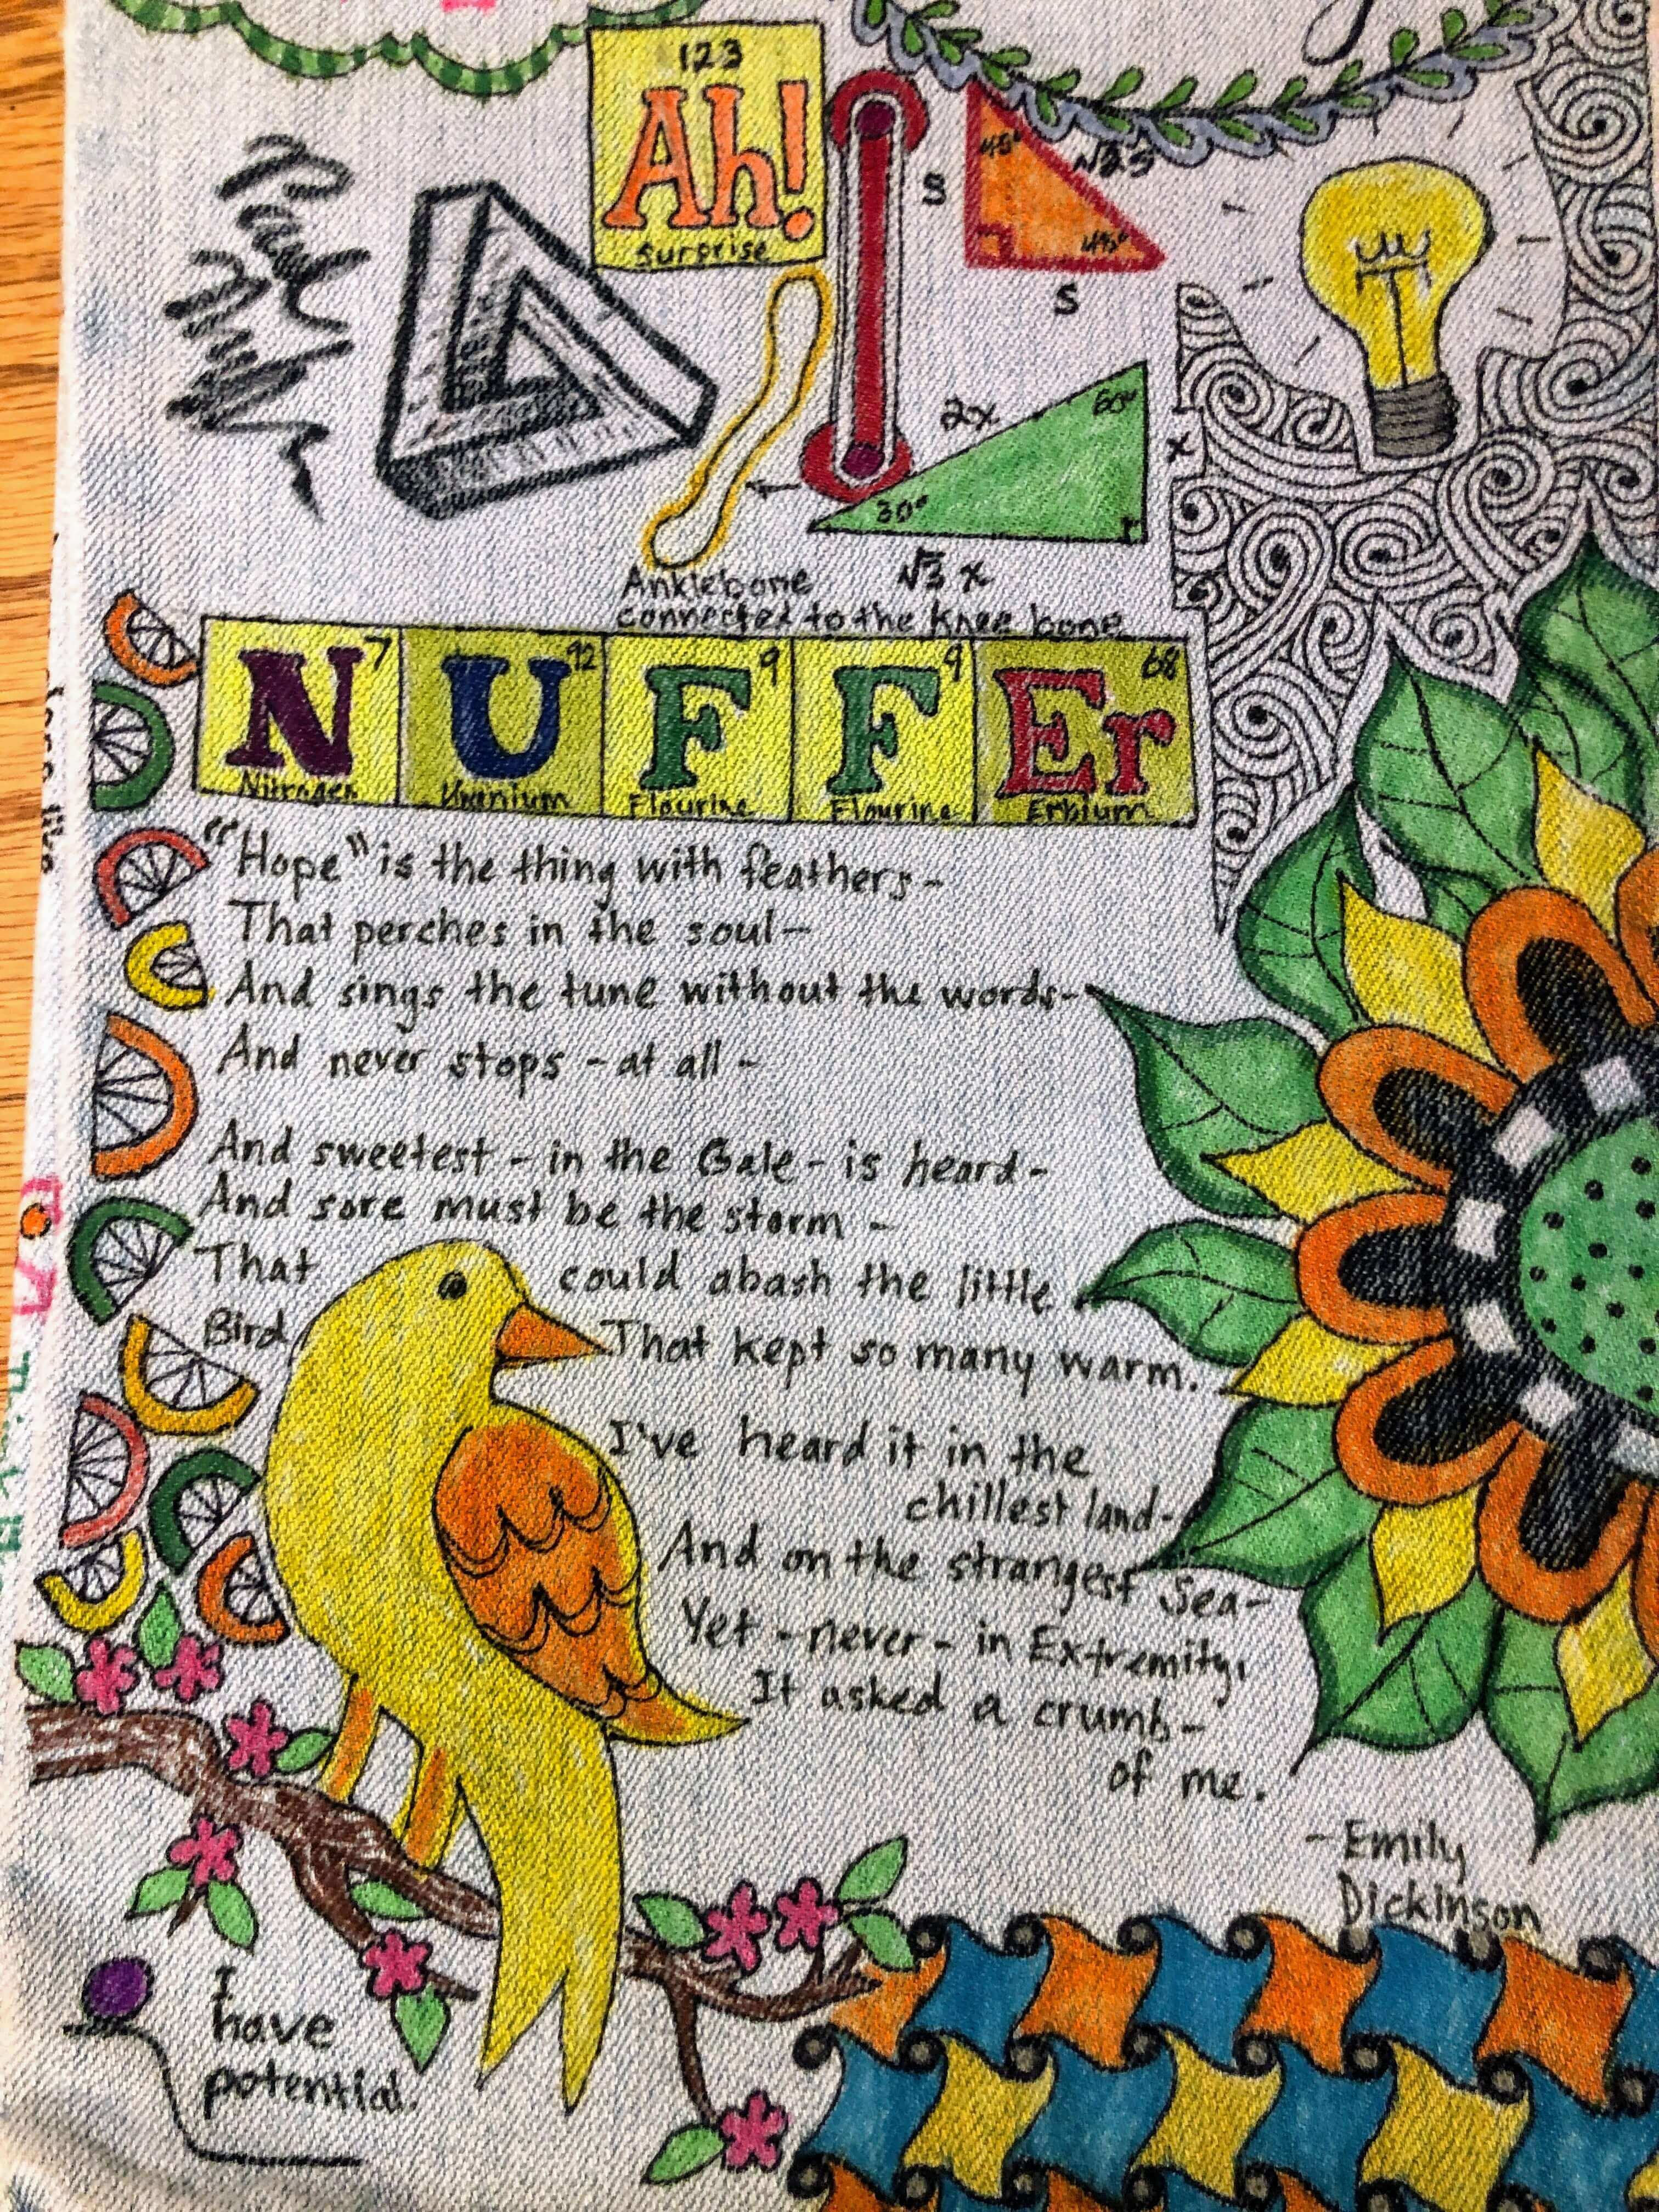 123
Ah!
Surprise
45°
√2 s
S
45°
S
2x
60°
x
30°
√3 x
Anklebone
connected to the knee bone
7 92 9 9 68
N U F F Er
Nitrogen Uranium Flourine Flourine Erbium
"Hope" is the thing with feathers-
That perches in the soul-
And sings the tune without the words-
And never stops - at all -
And sweetest - in the Gale - is heard-
And sore must be the storm -
That could abash the little
Bird
That kept so many warm.
I've heard it in the
chillest land-
And on the strangest Sea-
Yet - never - in Extremity,
It asked a crumb-
of me.
-Emily
Dickinson
I
have
potential.